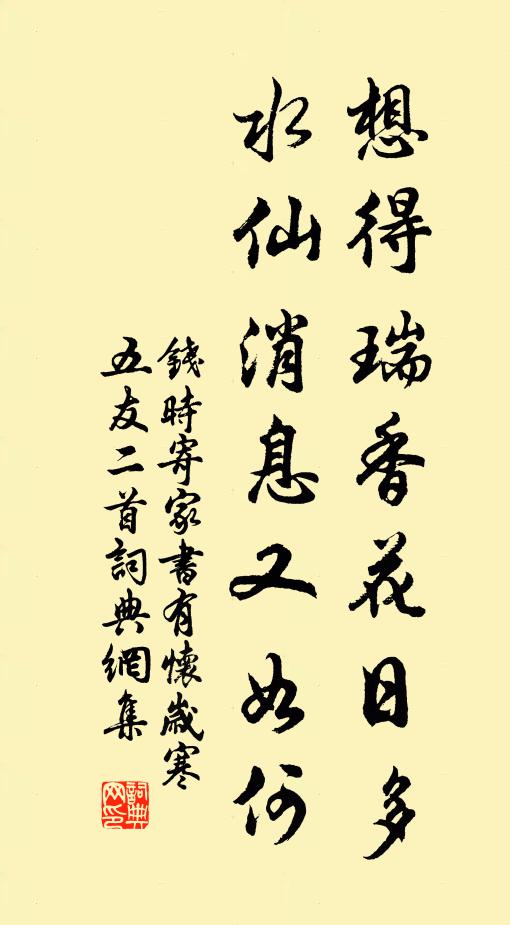 想得瑞香花日多
水仙消息又如何
錢時寄家書有懷歲寒
五友二首詞典網集
詞典
网印